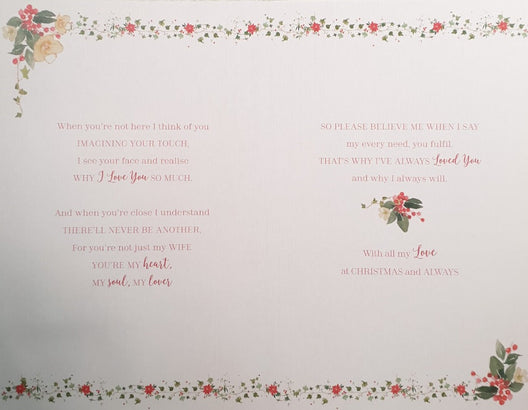 When you're not here I think of you
IMAGINING YOUR TOUCH,
I see your face and realise
WHY I Love You SO MUCH.
And when you're close I understand
THERE'LL NEVER BE ANOTHER,
For you're not just my WIFE
YOU'RE MY heart,
MY soul, MY lover
SO PLEASE BELIEVE ME WHEN I SAY
my every need, you fulfil,
THAT'S WHY I'VE ALWAYS Loved You
and why I always will.
With all my Love
at CHRISTMAS and ALWAYS